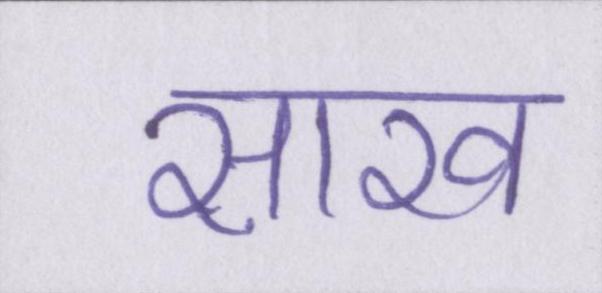 साख